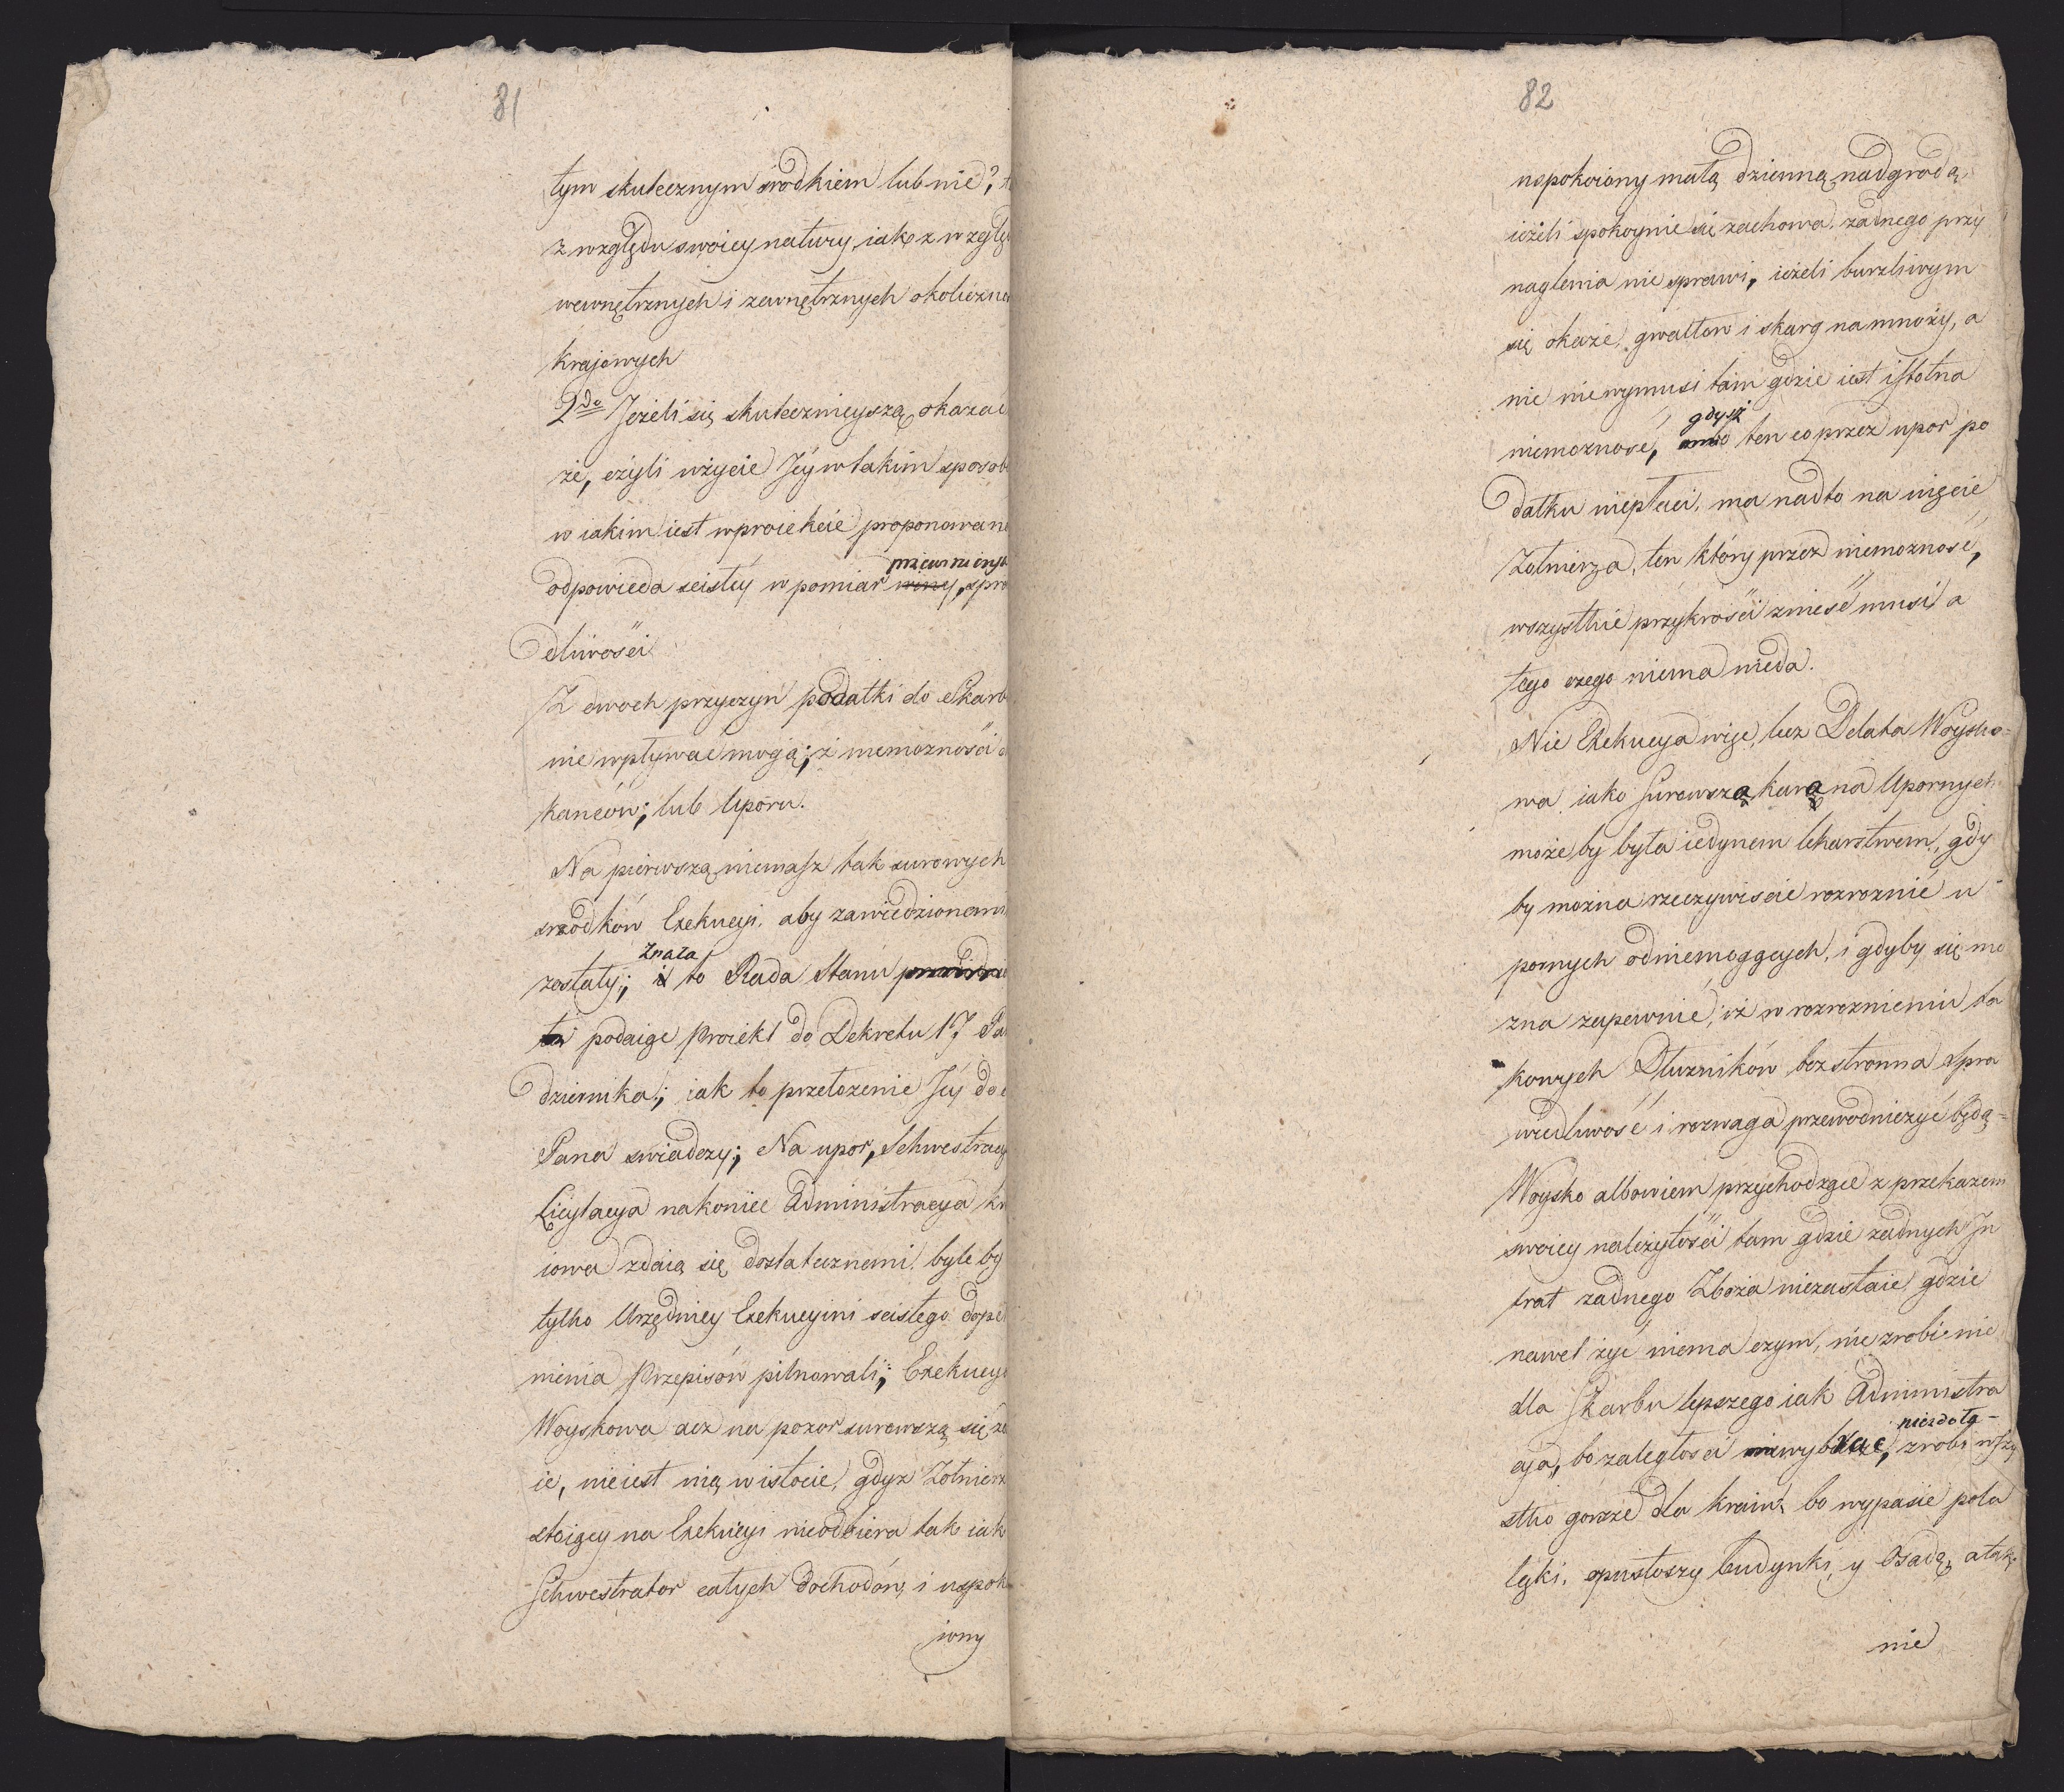 81
tym skutecznym srodkiem lub nie?
z względu swoiey natury, iak z wzglę
wewnętrznych i zewnętrznych okoliczno
krajowych
2do Jeżeli się skutecznieyszą okazac
że, czyli użycie Jey w takim sposob
w iakim iest w proiekcie proponowane
odpowieda scisley w pomiar winy, spra
dliwości
Z dwoch przyczyn podatki do Skarb
nie wpływać mogą; z niemozności
kancow; lub Uporu.
Na pierwszą niemasz tak surowych
srzodków Exekucyi, aby zawiedzionemi
znała
zostały; i to Rada Stanu
podaiąc Proiekt do Dekretu 17 Pa
dziernika; iak to przełozenie Jey do
Pana swiadczy; Na upor, Sekwestracy
Licytacya nakoniec Administracya kra
iowa zdaią się dostatecznemi byle by
tylko Urzędnicy Exekucyini scisłego dopeł
nienia Przepisów pilnowali; Exekucya
Woyskowa acz na pozor surowszą się zda
ie, nie iest nią w istocie, gdyz Zołnierz
stoiący na Exekucyi nieodbiera tak iak
Sekwestrator całych dochodów, i uspok
iony
82
uspokoiony małą dzienną nadgrodą
ieżeli spokoynie się zachowa, zadnego przy
naglenia nie sprawi, ieżeli burzliwym
się okaże, gwałtow i skarg namnoży, a
nic niewymusi tam gdzie iest istotna
gdysz
niemoznosć, ten co przez upor po
datku niepłaci, ma nadto na
Zołnierza, ten który przez niemoznosć,
wszystkie przykrości znieść musi a
tego czego niema nieda.
Nie Exekucya więc, lecz Delata Woysko=
wa iako surowszą karą na Upornych
może by była iedynem lekarstwem, gdy
by można rzeczywiscie rozroznić u
pornych od niemogących, i gdyby się mo
zna zapewnić, iż w rozroznieniu ta
kowych Dłuzników bezstronna Spra
wiedliwość i rozwaga przewodniczyć będą=
Woysko albowiem przychodząc z przekazem
swoiey należytości tam gdzie zadnych In
trat zadnego Zboża niezastaie, gdzie
nawet żyć niema czym, nie zrobi nic
dla Skarbu lepszego iak Administra
niezdoła-
cya, bo zaległosci wybrac, zrobi wszy
stko gorsze dla kraiu, bo wypasie pola
łąki, spustoszy budynki, y Osadę, a tak
nie